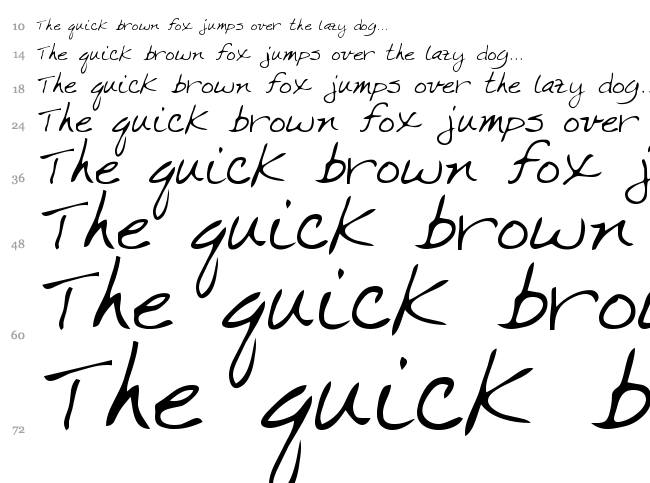 10 The quick brown fox jumps over the lazy dog...
14 The quick brown fox jumps over the lazy dog...
18 The quick brown fox jumps over the lazy dog..
24 The quick brown fox jumps over
36 The quick brown fox j
48 The quick brown
60 The quick brou
72 The quick b